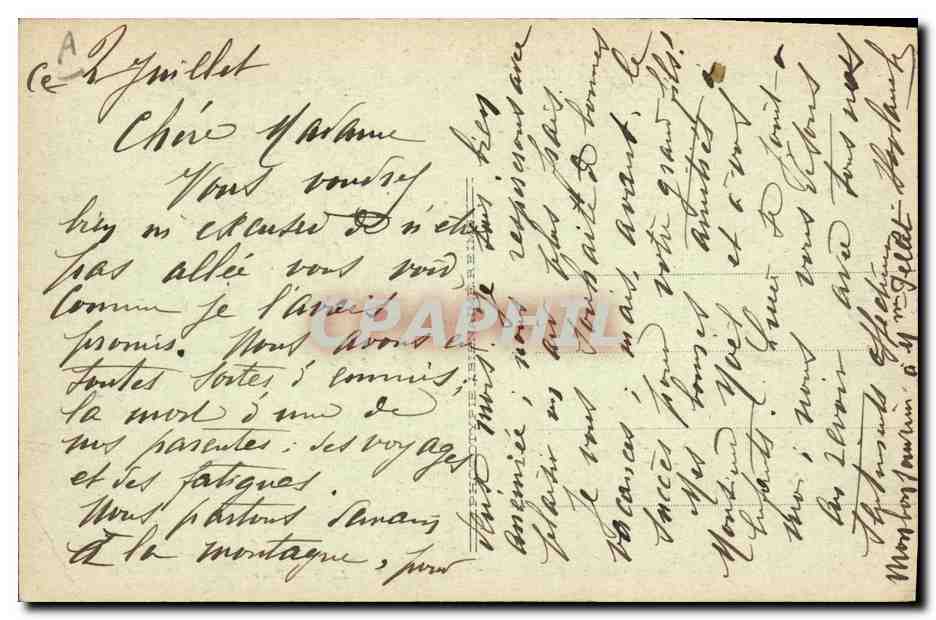 A
Ce 2 Juillet
Chère Madame
Vous voudrez
bien m'excuser de n'être
pas allée vous voir
comme je l'avais
promis. Nous avons eu
toutes sortes d'ennuis;
la mort d'une de
nos parentes: des voyages
et des fatigues.
Nous partons demain
à la montagne, pour
trois mois. Je suis bien
anémiée, nous respirerons avec
plaisir un air plus frais
Je vous souhaite de bonnes
vacances, mais, avant, le
succès pour votre grand fils!
Mes bonnes amitiés à
Monsieur Noël et à vos
enfants. Lucie se joint à
moi, nous vous disons
au revoir avec tous nos
sentiments affectueux
Mon bon souvenir à Mme Gellet.
CPAPHIL